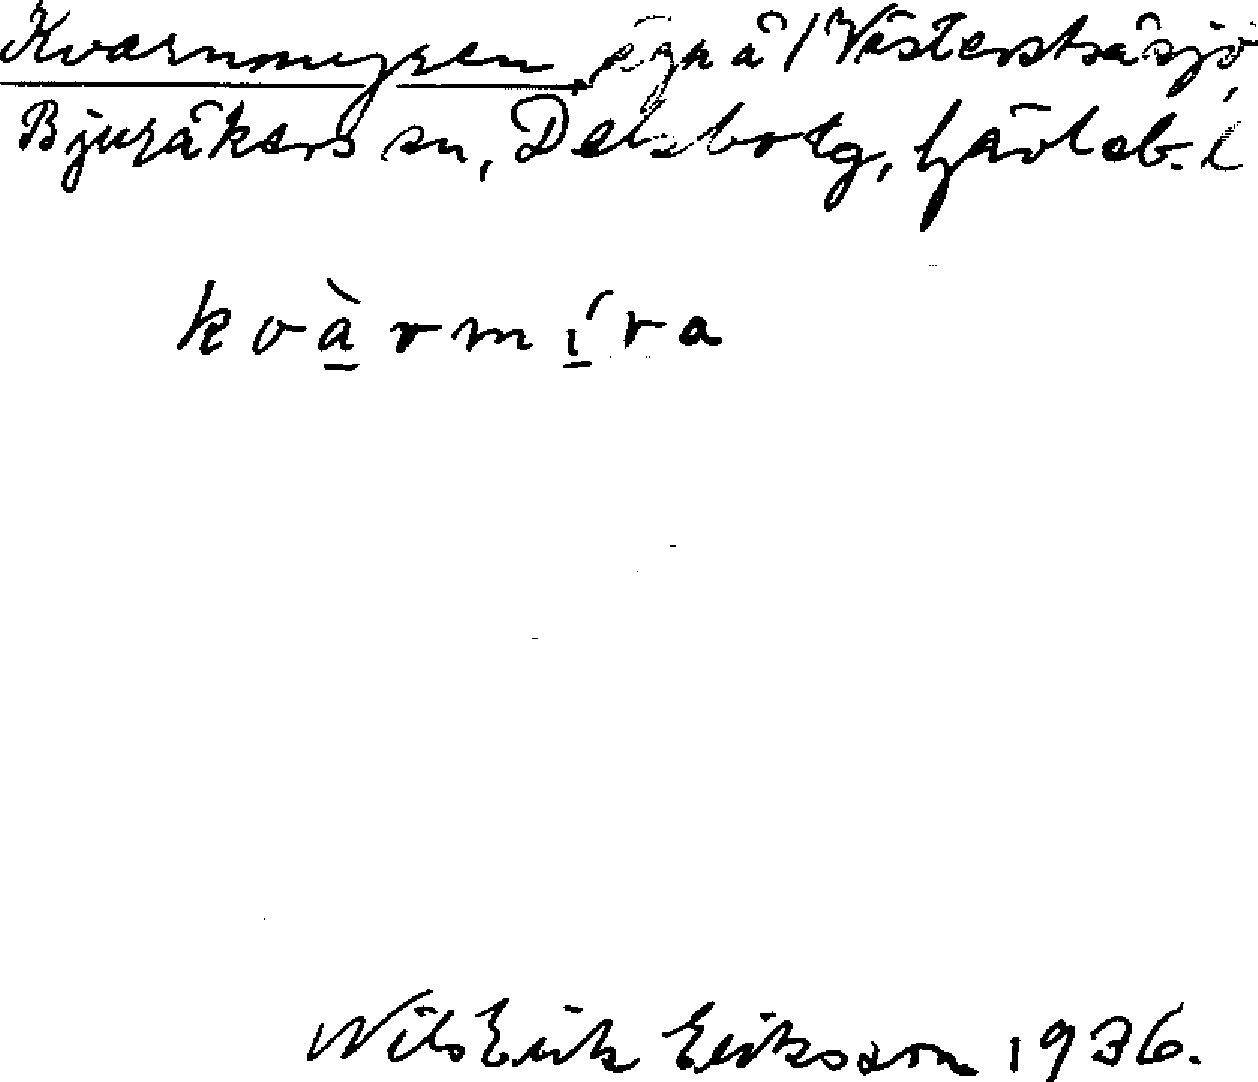 Kvarnmyren, ägnå/Västerstråsjö,
Bjuråkers sn, Delsbo tg, Gävleb. l
kvàrmíra
Nils Erik Eriksson 1936.